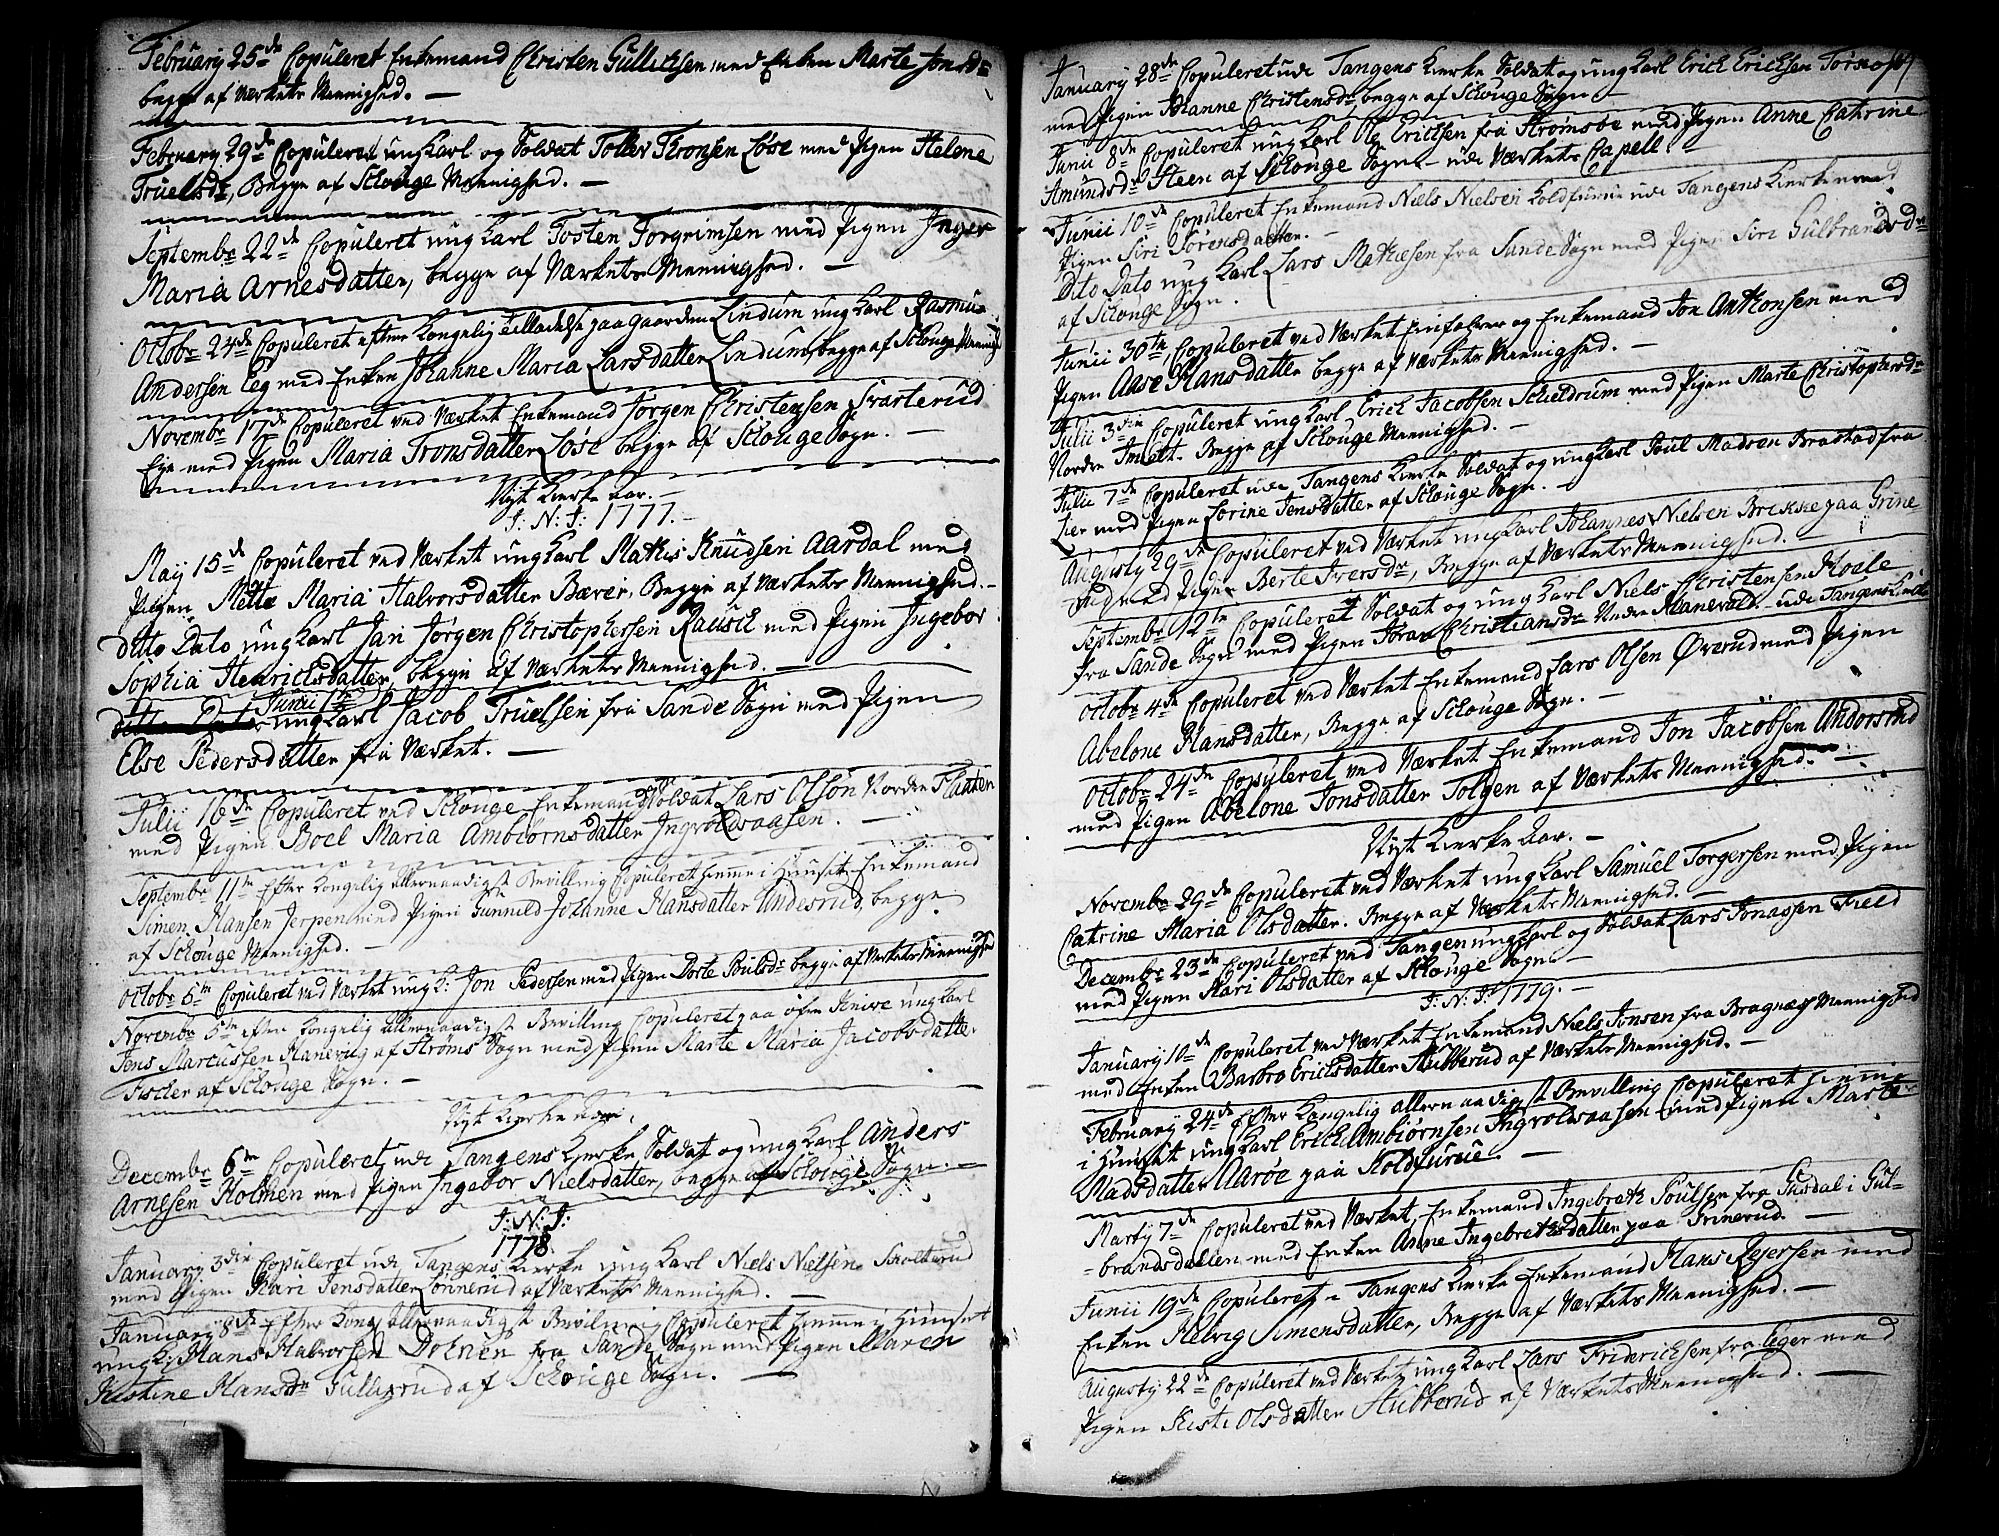 February 25de Copuleret Enkemand Christen Gullichsen med Enken Marte Jonsdr
begge af Værkets Meenighed. —
February 29de Copuleret ungKarl og Soldat Tollev Tronsen Løse med Pigen Helene
Truelsdr, Begge af Schouge Meenighed. —
Septembr 22de Copuleret ungKarl Tosten Torgrimsen med Pigen Inger
Maria Arnesdatter, begge af Værkets Meenighed. —
Octobr 24de Copuleret efter Kongelig Tilladelse paa Gaarden Lindum ungKarl Rasmus
Andersen Eeg med Enken Johanne Maria Larsdatter Lindum, begge af Schouge Meenigh
Novembr 17de Copuleret ved Værket Enkemand Jørgen Christensen Svarterud
Eye med Pigen Maria Tronsdatter Løse begge af Schouge Sogn. —
Nyt Kierke Aar. —
I: N: I: 1777. —
May 15de Copuleret ved Værket ungKarl Mathis Knudsen Aardal med
Pigen Mette Maria Halvorsdatter Bærer, Begge af Værkets Meenighed. —
Ditto Dato ungKarl Jan Jørgen Christophersen Rausch med Pigen Ingebor
Sophia Henrichsdatter, begge af Værkets Meenighed. —
Junii ungKarl Jacob Truelsen fra Sande Sogn med Pigen
Else Pedersdatter fra Værket. —
Julii 16de Copuleret ved Schouge Enkemand Soldat Lars Olsøn Nordre Flaaten
med Pigen Boel Maria Ambiornsdatter Ingvoldsaasen. —
Septembr 11te Efter Kongelig allernaadigst Bevilling Copuleret hiemme i Huuset Enkemand
Simen Hansen Jerpen med Pigen Gunnild Johanne Hansdatter Undesrud, begge
af Schouge Meenighed. —
Octobr 6te Copuleret ved Værket ungK: Jon Pedersen med Pigen Dorte Poulsdr begge af Værkets Meenighed
Novembr 5te efter Kongelig allernaadigst Bevilling Copuleret paa øfre ungKarl
Jens Marcussen Hanevig af Strøms Sogn med Pigen Marte Maria Jacobsdatter
Fischer af Schouge Sogn. —
Nyt Kierke Aar.
Decembr 6te Copuleret udi Tangens Kierke Soldat og ungKarl Anders
Arnesen Holmen med Pigen Ingebor Nielsdatter, begge af Schouge Sogn. —
I: N: I:
1778.
January 3die Copuleret udi Tangens Kierke ungKarl Niels Nielsen Skolterud
med Pigen Kari Jensdatter Lønnerud af Værkets Meenighed. —
January 8de Efter Kong: Allernaadigst Bevilning Copuleret hiemme i Huuset
ungK: Hans Halvorsen Dohnen fra Sande Sogn med Pigen Maren
Kistine Hansdr Gullerud af Schouge Sogn. —
January 28de Copuleret udi Tangens Kierke Soldat og ungKarl Erich Erichsen Torsrop
med Pigen Hanne Christensdr, begge af Schouge Sogn —
Junii 8de Copuleret ungKarl Ole Erichsen fra Strømsøe med Pigen Anne Catrine
Amundsdr Steen af Schouge Sogn — udi Værkets Capell. —
Junii 10de Copuleret Enkemand Niels Nielsen Koldfurue udi Tangens Kierke med
Pigen Siri Sørensdatter. —
Dito Dato ungKarl Lars Mathesen fra Sande Sogn med Pigen Siri Gulbrandsdr
af Schouge Sogn.
Junii 30te Copuleret ved Værket Einfølver og Enkemand Jon Anthonsen med
Pigen Aase Hansdatter begge af Værkets Meenighed. —
Julii 3die Copuleret ungKarl Erich Jacobsen Scheldrum med Pigen Marte Christophersdr
Nordre Imelt. Begge af Schouge Meenighed. —
Julii 7de Copuleret udi Tangens Kierke Soldat og ungKarl Poul Madsen Brastad fra
Lier med Pigen Lorine Jensdatter af Schouge Sogn. —
Augusty 29de Copuleret ved Værket ungKarl Johannes Nielsen Brekke paa Grine
rud med Pigen Berte Iversdr, Begge af Værkets Meenighed. —
Septembr 12te Copuleret Soldat og ungKarl Niels Christensen Hoale
fra Sande Sogn med Pigen Joran Christiansdr Nedre Hanevald — udi Tangens Kierke
Octobr 4de Copuleret ved Værket Enkemand Lars Olsen Øvrerud med Pigen
Abelone Hansdatter, Begge af Schouge Sogn. —
Octobr 24de Copuleret ved Værket Enkemand Jon Jacobsen Andorsrud
med Pigen Abelone Jonsdatter Tolgen af Værkets Meenighed. —
Nyt Kierke Aar. —
Novembr 29de Copuleret ved Værket ungKarl Samuel Torgersen med Pigen
Catrine Maria Olsdatter. Begge af Værkets Meenighed. —
Decembr 23de Copuleret ved Tangen ungKarl og Soldat Lars Jonassen Field
med Pigen Kari Olsdatter af Schouge Sogn —
I: N: I: 1779. —
January 10de Copuleret ved Værket Enkemand Niels Jonsen fra Bragnæs Meenighed
med Enken Barbro Erichsdatter Stubberud af Værkets Meenighed. —
February 24de Efter Kongelig allernaadigst Bevilling Copuleret hiemme
i Huuset ungKarl Erich Ambiørnsen Ingvoldsaasen med Pigen Marte
Madsdatter Aarøe paa Koldfurue. —
Marty 7de Copuleret ved Værket, Enkemand Ingebreth Poulsen fra Gusdal i Gul-
-brandsdallen med Enken Anne Ingebrethsdatter paa Grinerud. —
Junii 19de Copuleret i Tangens Kierke Enkemand Hans Pejersen med
Enken Helvig Simensdatter, Begge af Værkets Meenighed. —
Augusty 22de Copuleret ved Værket ungKarl Lars Friderichsen fra Eger med
Pigen Kisti Olsdatter Stubberud af Værkets Meenighed. —